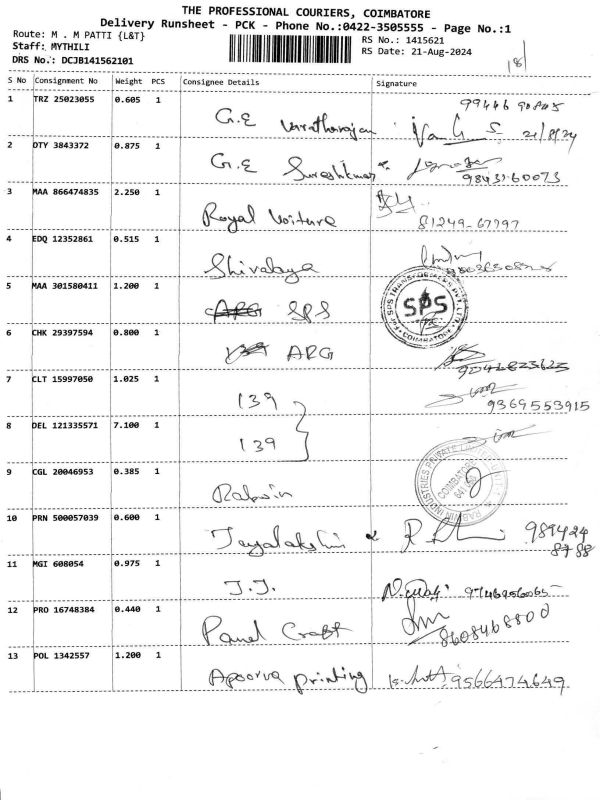 THE PROFESSIONAL COURIERS, COIMBATORE
Delivery Runsheet - PCK - Phone No.:0422-3505555 - Page No.:1
Route: M . M PATTI {L&T}
Staff: MYTHILI
DRS No.: DCJB141562101
RS No.: 1415621
RS Date: 21-Aug-2024
18
S No Consignment No Weight PCS Consignee Details Signature
1 TRZ 25023055 0.605 1 G.E Varatharajan 21/8/24
2 DTY 3843372 0.875 1 G.E Sureshkumar 98431-60073
3 MAA 866474835 2.250 1 Royal Voiture 81249-67797
4 EDQ 12352861 0.515 1 Shivalaya
5 MAA 301580411 1.200 1 ARG SPS
SPS
COIMBATORE
6 CHK 29397594 0.800 1 ARG
7 CLT 15997050 1.025 1 139 9369553915
8 DEL 121335571 7.100 1 139
9 CGL 20046953 0.385 1 Rabwin
RABWIN INDUSTRIES PRIVATE LIMITED
COIMBATORE
10 PRN 500057039 0.600 1 989424
8788
11 MGI 608054 0.975 1 J.J. 9746956065
12 PRO 16748384 0.440 1 Panel Craft 8608468800
13 POL 1342557 1.200 1 Apoorva printing 9566474649